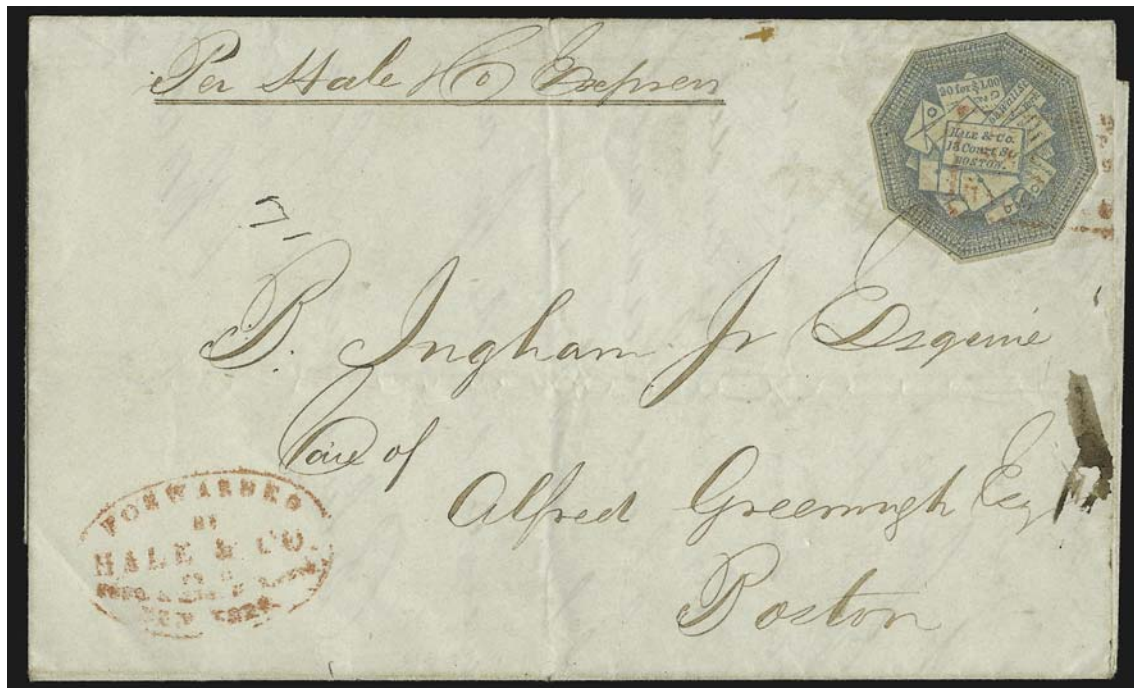 Per Hale & Co Express
20 for $1.00
HALE & Co.
13 Court St.
BOSTON.
71
B. Ingham Jr Esquire
Care of
Alfred Greenough Esq
Boston
FORWARDED
BY
HALE & CO.
FROM
NEW YORK